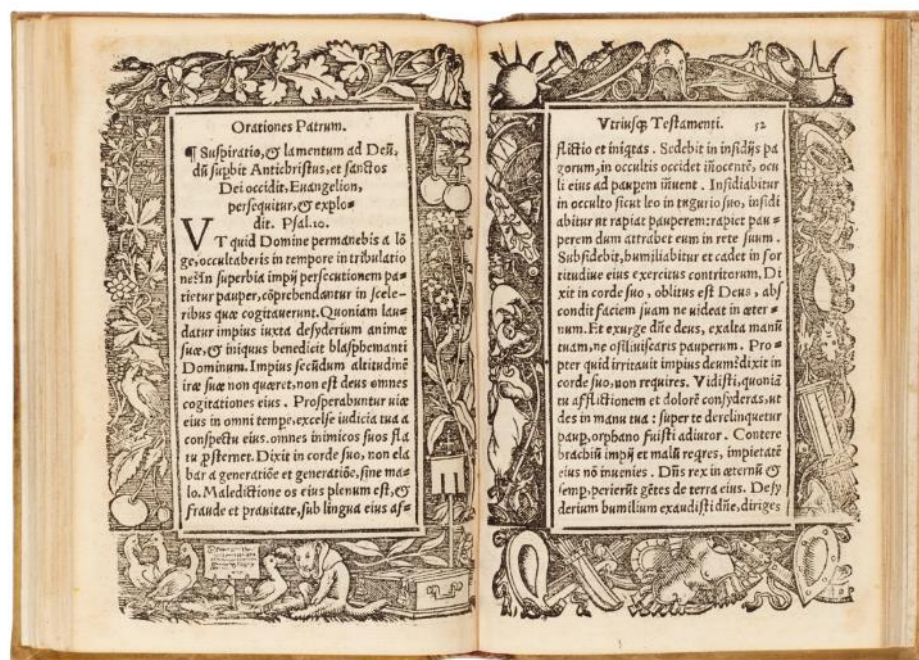 Orationes Patrum.
¶ Suſpiratio, & lamentum ad Deū,
dū ſupbit Antichriſtus, et ſanctos
Dei occidit, Euangelion,
perſequitur, & explo⸗
dit. Pſal. 10.
VT quid Domine permanebis a lō
ge, occultaberis in tempore in tribulatio
ne? In ſuperbia impij perſecutionem pa⸗
tietur pauper, cōprehendantur in ſcele⸗
ribus quæ cogitauerunt. Quoniam lau⸗
datur impius iuxta deſyderium animæ
ſuæ, & iniquus benedicit blaſphemanti
Dominum. Impius ſecūdum altitudinē
iræ ſuæ non quæret, non eſt deus omnes
cogitationes eius. Proſperabuntur uiæ
eius in omni tempe, excelſe iudicia tua a
conſpectu eius. omnes inimicos ſuos fla
tu ꝑſternet. Dixit in corde ſuo, non ela
bar a generatiōe et generatiōe, ſine ma⸗
lo. Maledictione os eius plenum eſt, &
fraude et prauitate, ſub lingua eius af⸗
Vtriuſqꝫ Teſtamenti. 52
flictio et iniqtas. Sedebit in inſidijs pa
gorum, in occultis occidet iñocentē, ocu
li eius ad paupem iñuent. Inſidiabitur
in occulto ſicut leo in tugurio ſuo, inſidi
abitur ut rapiat pauperem: rapiet pau⸗
perem dum attrabet eum in rete ſuum.
Subſidebit, humiliabitur et cadet in for
titudiue eius exercitus contritorum, Di
xit in corde ſuo, oblitus eſt Deus, abſ
condit faciem ſuam ne uideat in æter⸗
num. Et exurge dñe deus, exalta manū
tuam, ne obliuiſcaris pauperum. Pro⸗
pter quid irritauit impius deum? dixit in
corde ſuo, non requires. Vidiſti, quoniā
tu afflictionem et dolorē conſyderas, ut
des in manu tua: ſuper te derclinquetur
paup, orphano fuiſti adiutor. Contere
brachiū impij et malū reqres, impietatē
eius nō inuenies. Dñs rex in æternū &
ſemp, perierūt gētes de terra eius. Deſy
derium humilium exaudiſti dñe, diriges